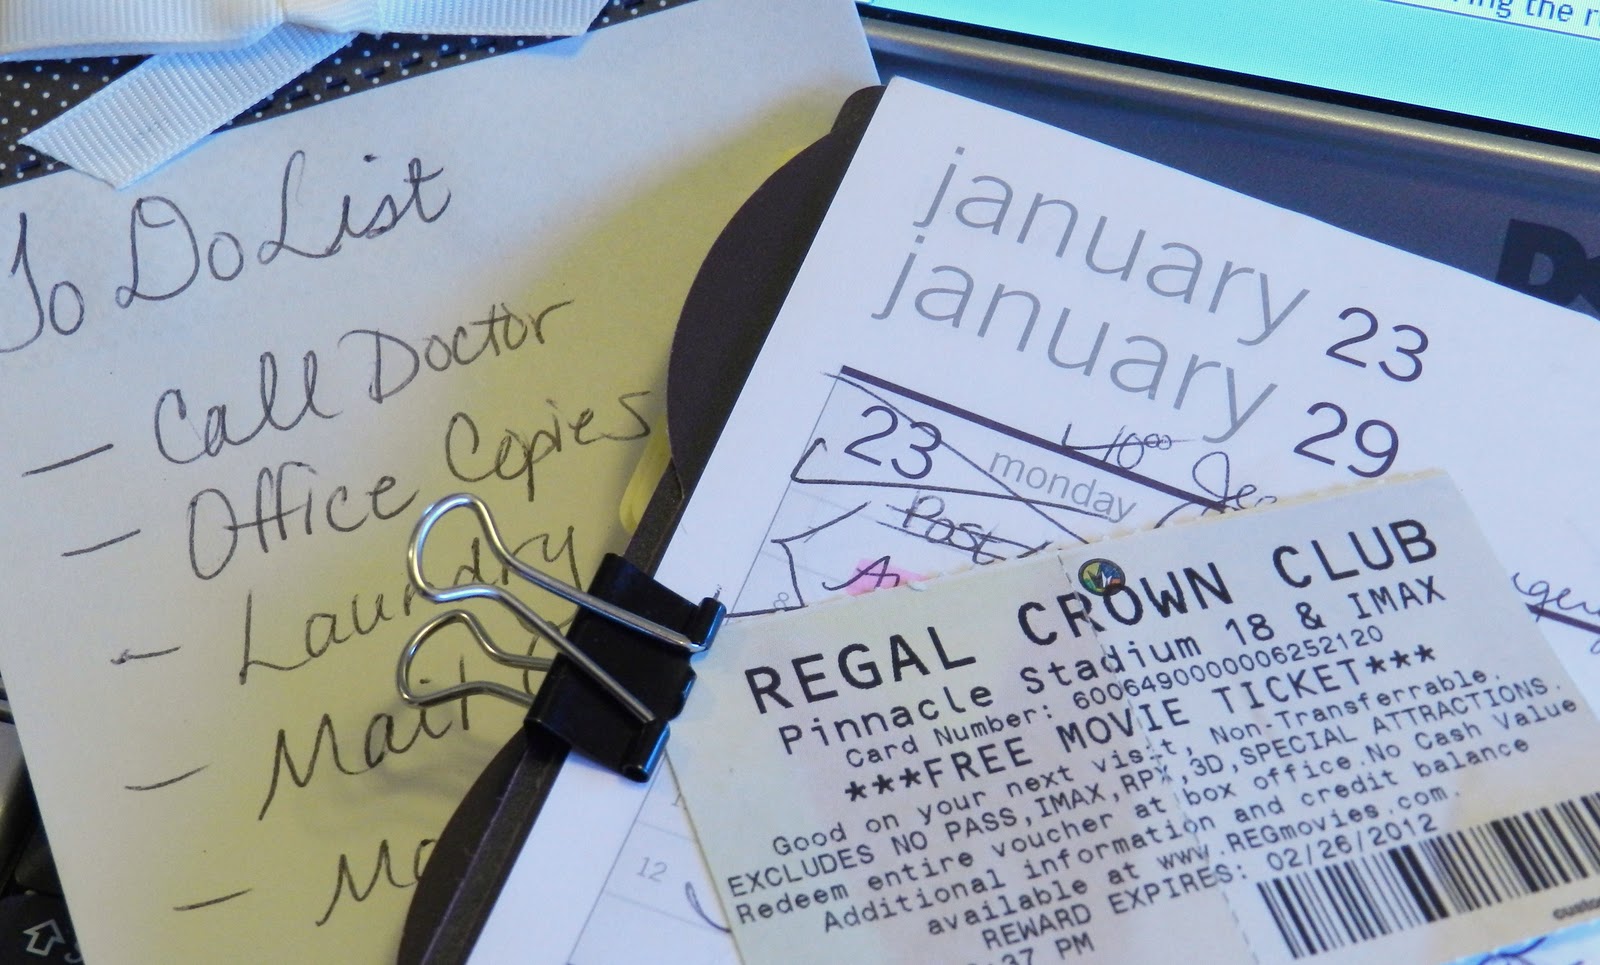 ing the
To Do List
- Call Doctor
- Office Copies
- Laundry
- Mail
-
january 23
january 29
23 monday
10:00
Post
8
12
REGAL CROWN CLUB
Pinnacle Stadium 18 & IMAX
Card Number: 6006490000006252120
***FREE MOVIE TICKET***
Good on your next visit, Non-Transferrable.
EXCLUDES NO PASS,IMAX,RPX,3D,SPECIAL ATTRACTIONS.
Redeem entire voucher at box office.No Cash Value
Additional information and credit balance
available at www.REGmovies.com.
REWARD EXPIRES: 02/26/2012
:37 PM